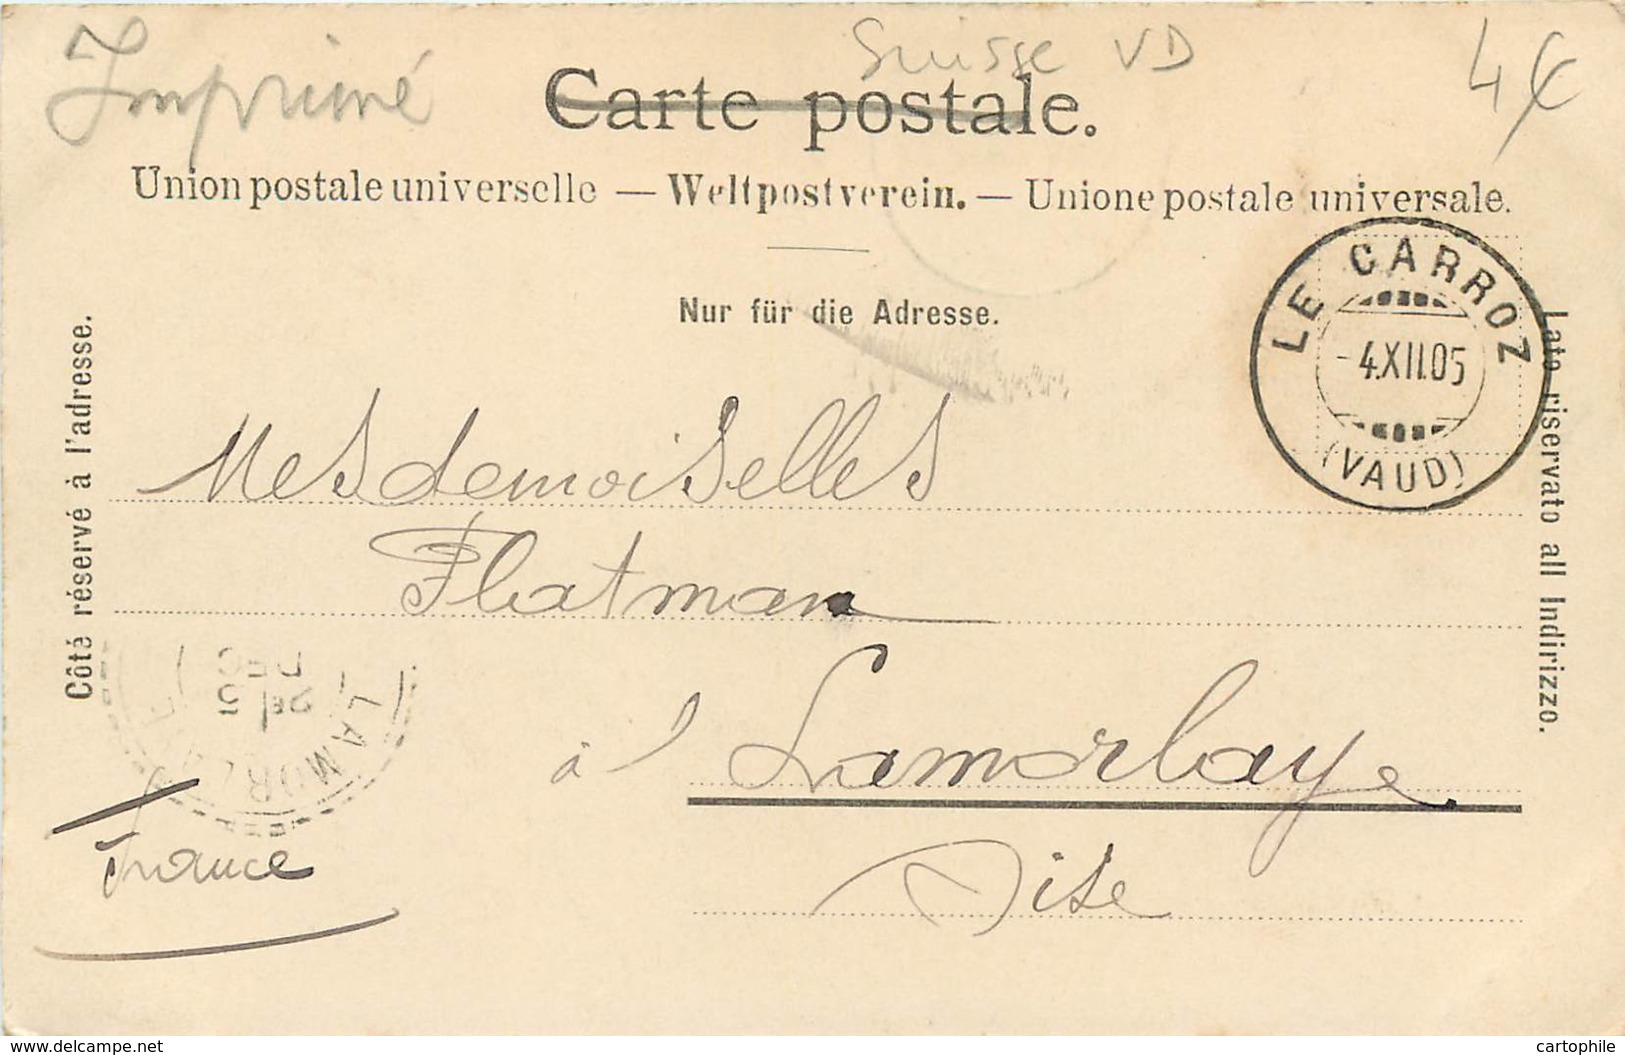 Imprimé
Suisse VD
4€
Carte postale.
Union postale universelle — Weltpostverein. — Unione postale universale.
Nur für die Adresse.
Côté réservé à l'adresse.
Lato riservato all Indirizzo.
LE CARROZ
-4.XII.05
(VAUD)
Mesdemoiselles
Flatman
à Lamorlaye
Oise
France
LAMORL
5
DEC
www.delcampe.net
cartophile